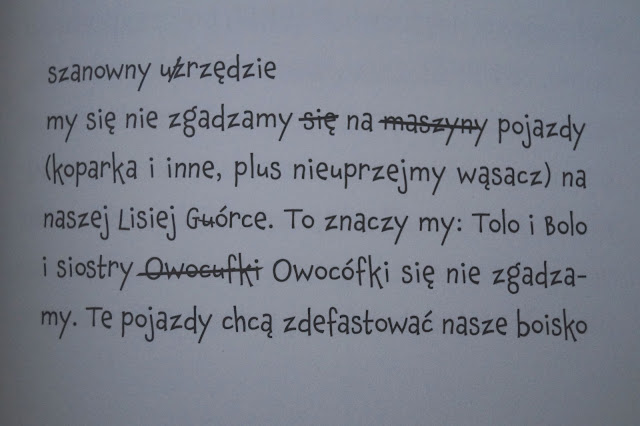 szanowny użrzędzie
my się nie zgadzamy się na maszyny pojazdy
(koparka i inne, plus nieuprzejmy wąsacz) na
naszej Lisiej Guórce. To znaczy my: Tolo i Bolo
i siostry Owocufki Owocófki się nie zgadza-
my. Te pojazdy chcą zdefastować nasze boisko